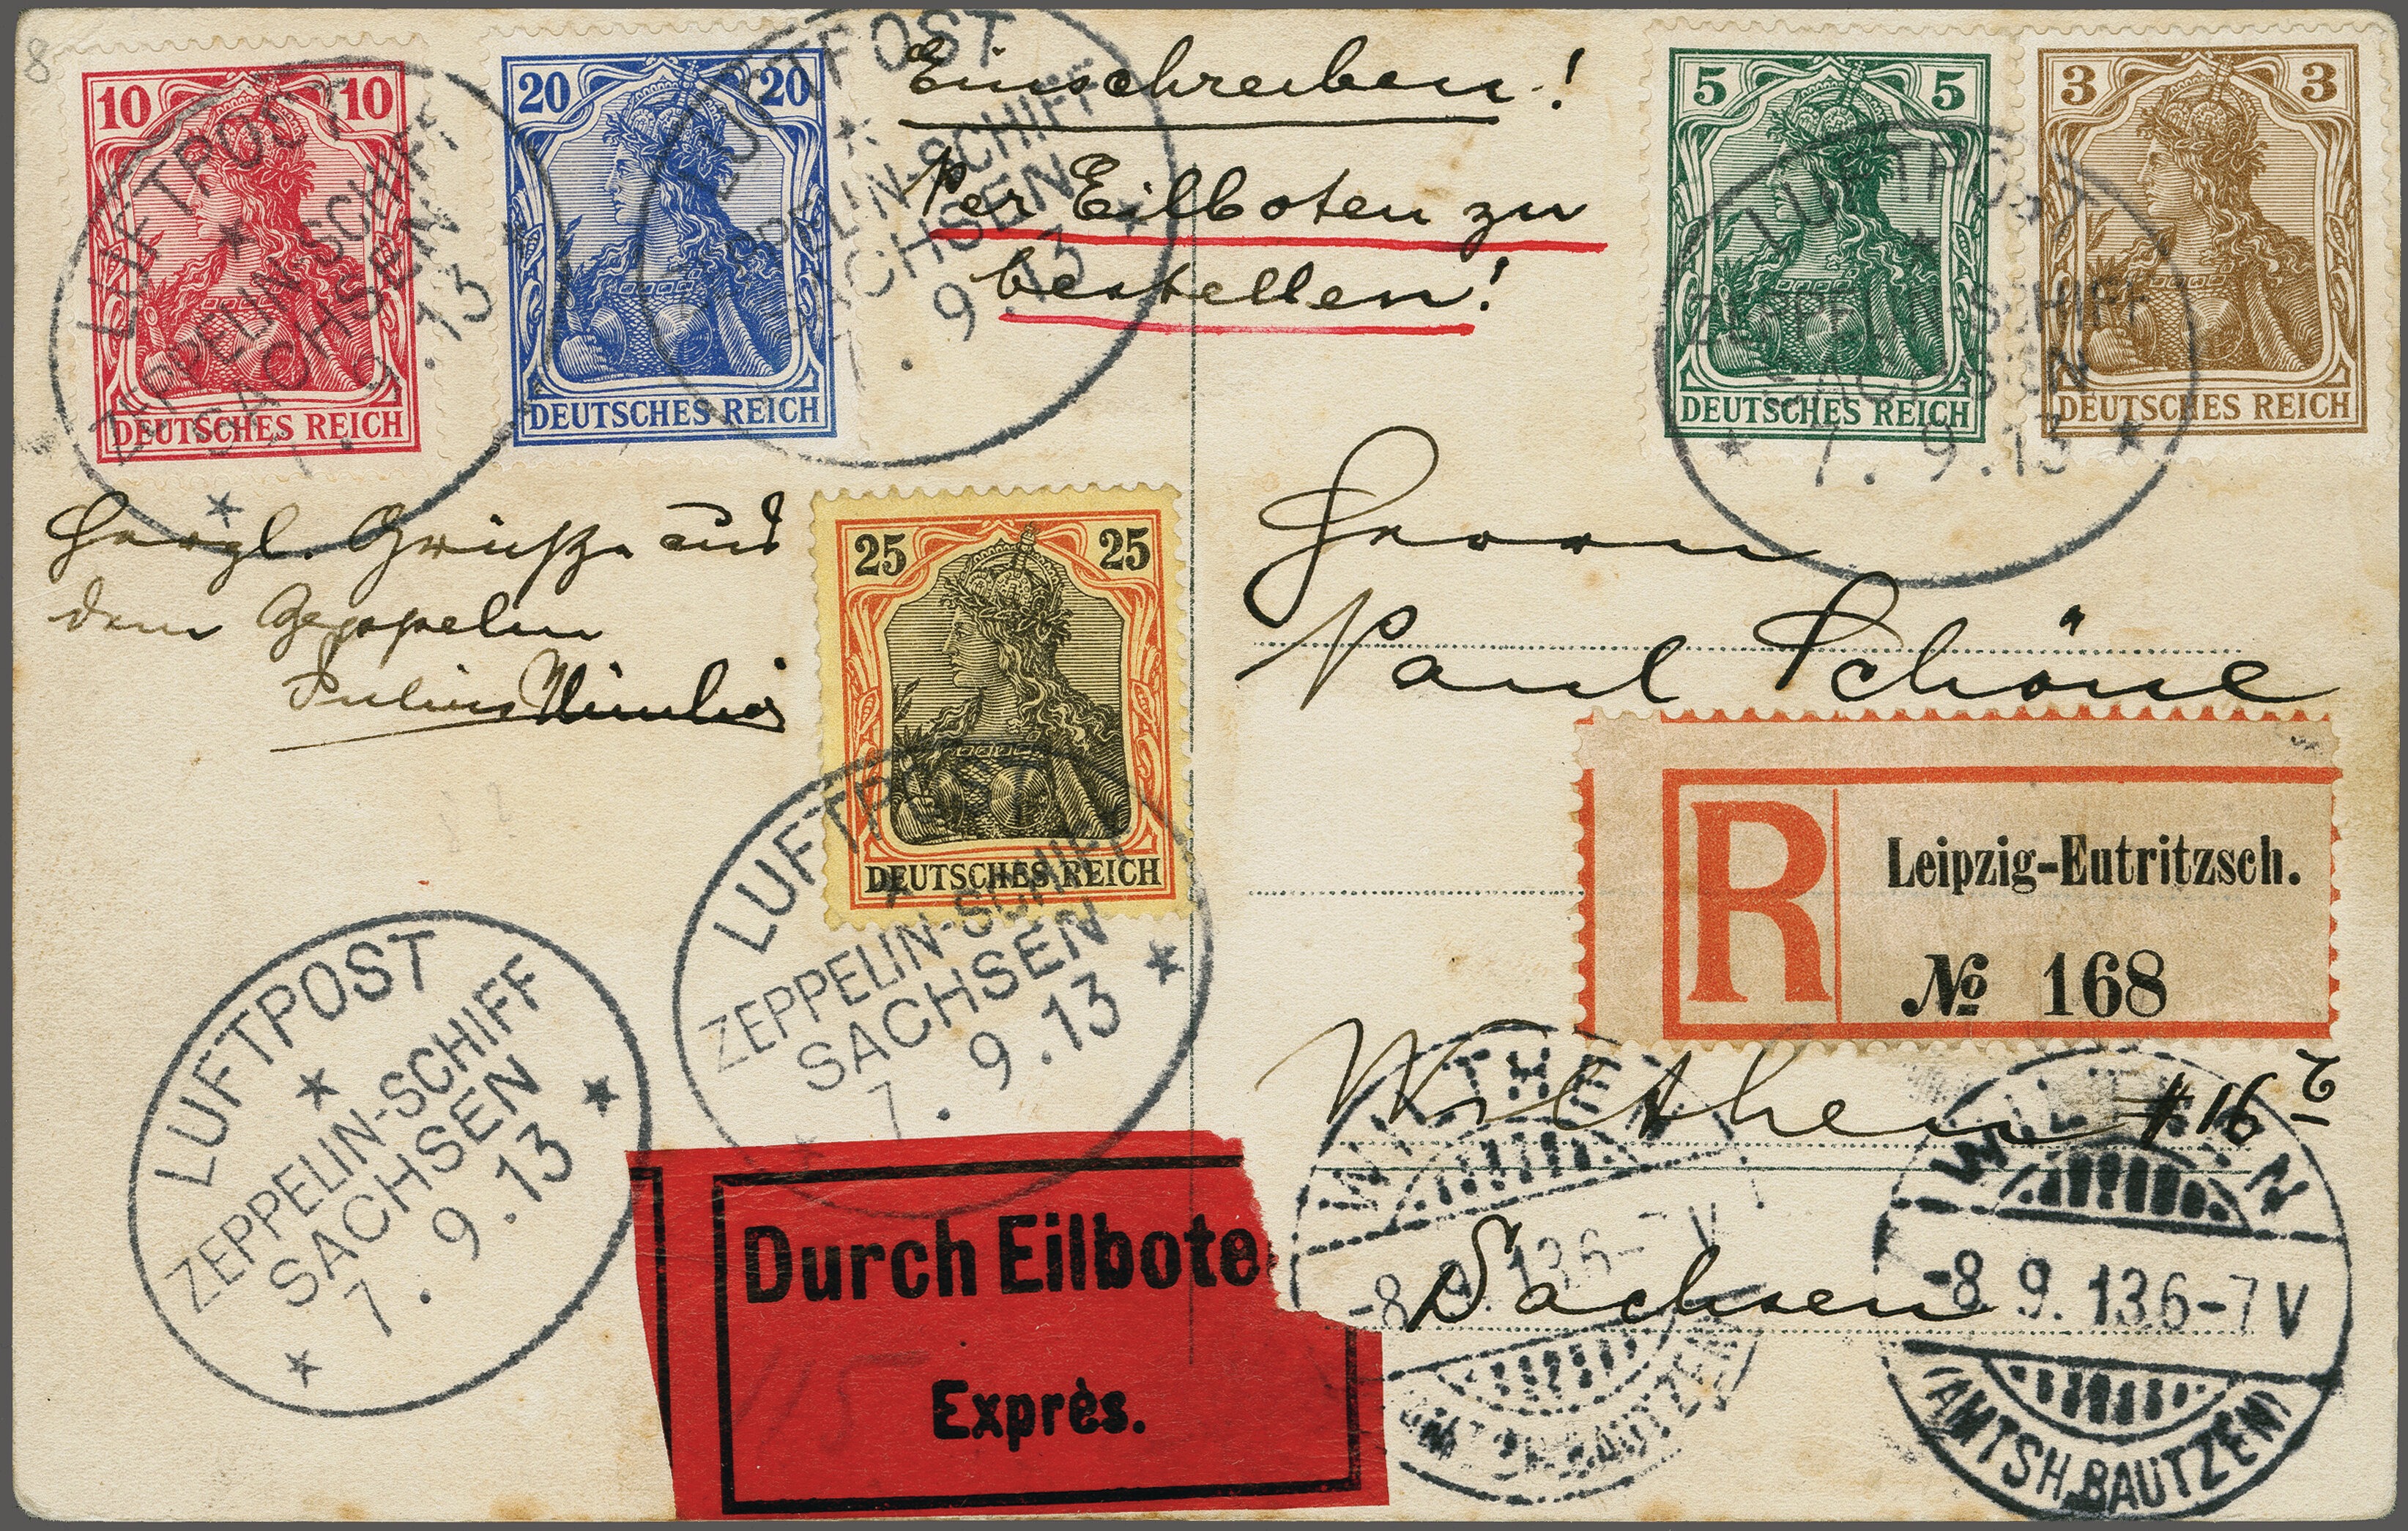 8
10 10
DEUTSCHES REICH
20 20
DEUTSCHES REICH
5 5
DEUTSCHES REICH
3 3
DEUTSCHES REICH
LUFTPOST
ZEPPELIN-SCHIFF
SACHSEN
7. 9.13
LUFTPOST
ZEPPELIN-SCHIFF
SACHSEN
7. 9.13
LUFTPOST
ZEPPELIN-SCHIFF
SACHSEN
7. 9.13
Einschreiben!
Per Eilboten zu
bestellen!
Herzl. Grüße aus
dem Zeppelin
Julius
25 25
DEUTSCHES REICH
LUFTPOST
ZEPPELIN-SCHIFF
SACHSEN
7. 9.13
LUFTPOST
ZEPPELIN-SCHIFF
SACHSEN
7. 9.13
Herrn
Paul Schöne
R
Leipzig-Eutritzsch.
№ 168
Wilthen
Sachsen
Durch Eilbote
Exprès.
115
WILTHEN
-8.9.13.6-7V
(AMTSH. BAUTZEN)
WILTHEN
-8.9.13.6-7V
(AMTSH. BAUTZEN)